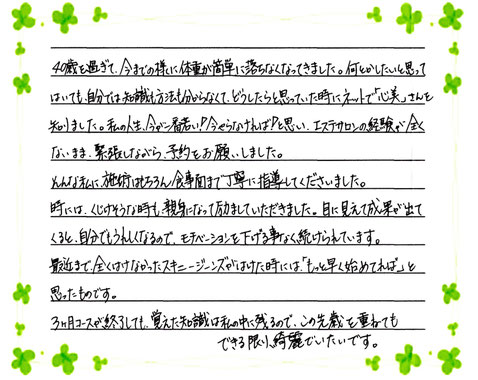 40歳を過ぎて、今までの様に体重が簡単に落ちなくなってきました。何とかしたいと思って
はいても、自分では知識も方法も分からなくて、どうしたらと思っていた時にネットで「心美」さんを
知りました。私の人生、今が一番若い!今やらなければ!と思い、エステサロンの経験が全く
ないまま、緊張しながら、予約をお願いしました。
そんな私に、施術はもちろん食事面まで丁寧に指導してくださいました。
時には、くじけそうな時も、親身になって励ましていただきました。目に見えて成果が出て
くると、自分でもうれしくなるので、モチベーションを下げる事なく続けられています。
最近まで、全くはけなかったスキニージーンズがはけた時には、「もっと早く始めてれば」と
思ったものです。
3ヶ月コースが終了しても、覚えた知識は私の中に残るので、この先歳を重ねても
できる限り、綺麗でいたいです。